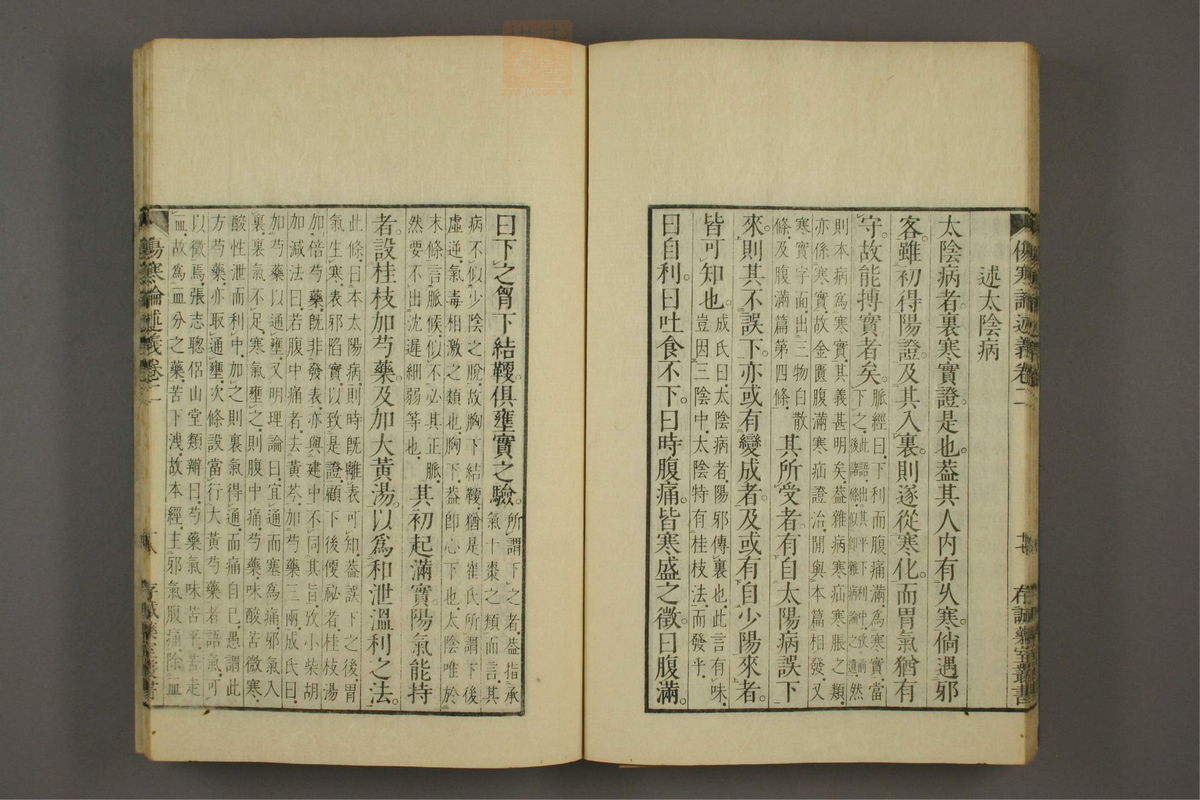 傷寒論述義卷二
述太陰病
太陰病者。裏寒實證是也。葢其人內有久寒。倘遇邪
客。雖初得陽證。及其入裏。則遂從寒化。而胃氣猶有
守。故能搏實者矣。脈經曰。下利而腹痛滿。爲寒實。當
下之。此語
則本病爲寒實。其義甚明矣。葢雜病寒疝寒脹之類。
亦係寒實。故金匱腹滿寒疝證治。閒與本篇相發。又
寒實字面。出三物白散
條。及腹滿篇第四條。其所受者。有自太陽病誤下
來。則其不誤下。亦或有變成者。及或有自少陽來者。
皆可知也。成氏曰。太陰病者。陽邪傳裏也。此言有味。
豈因三陰中。太陰特有桂枝法。而發乎。
曰自利。曰吐食不下。曰時腹痛。皆寒盛之徵。曰腹滿。
存誠藥室叢書
曰下之胷下結鞕。俱壅實之驗。所謂下之者。葢指承
氣十棗之類而言。其
病不似少陰之脫。故胸下結鞕。猶是崔氏所謂下後
虛逆。氣毒相激之類也。胸下。葢卽心下也。太陰唯於
末條言脈候。似不必其正脈。
然要不出沈遲細弱等也。其初起滿實。陽氣能持
者。設桂枝加芍藥。及加大黃湯。以爲和泄溫利之法。
此條曰。本太陽病。則時既離表可知。葢誤下之後。胃
氣生寒。表邪陷實。以致是證。顧下後便祕者。桂枝湯
加倍芍藥。既非發表。亦與建中不同其旨。攷小柴胡
加減法曰。若腹中痛者。去黃芩。加芍藥三兩。成氏曰。
加芍藥。以通壅。又明理論曰。宜通而塞爲痛。邪氣入
裏。裏氣不足。寒氣壅之。則腹中痛。芍藥。味酸苦微寒。
酸性泄而利中。加之則裏氣得通。而痛自已。愚謂此
方芍藥。亦取通壅。次條設當行大黃芍藥者語氣。可
以徵焉。張志聰侶山堂類辯曰。芍藥。氣味苦平。苦走
血。故爲血分之藥。苦下洩。故本經。主邪氣腹痛。除血
傷寒論述義卷二
十八
存誠藥室叢書